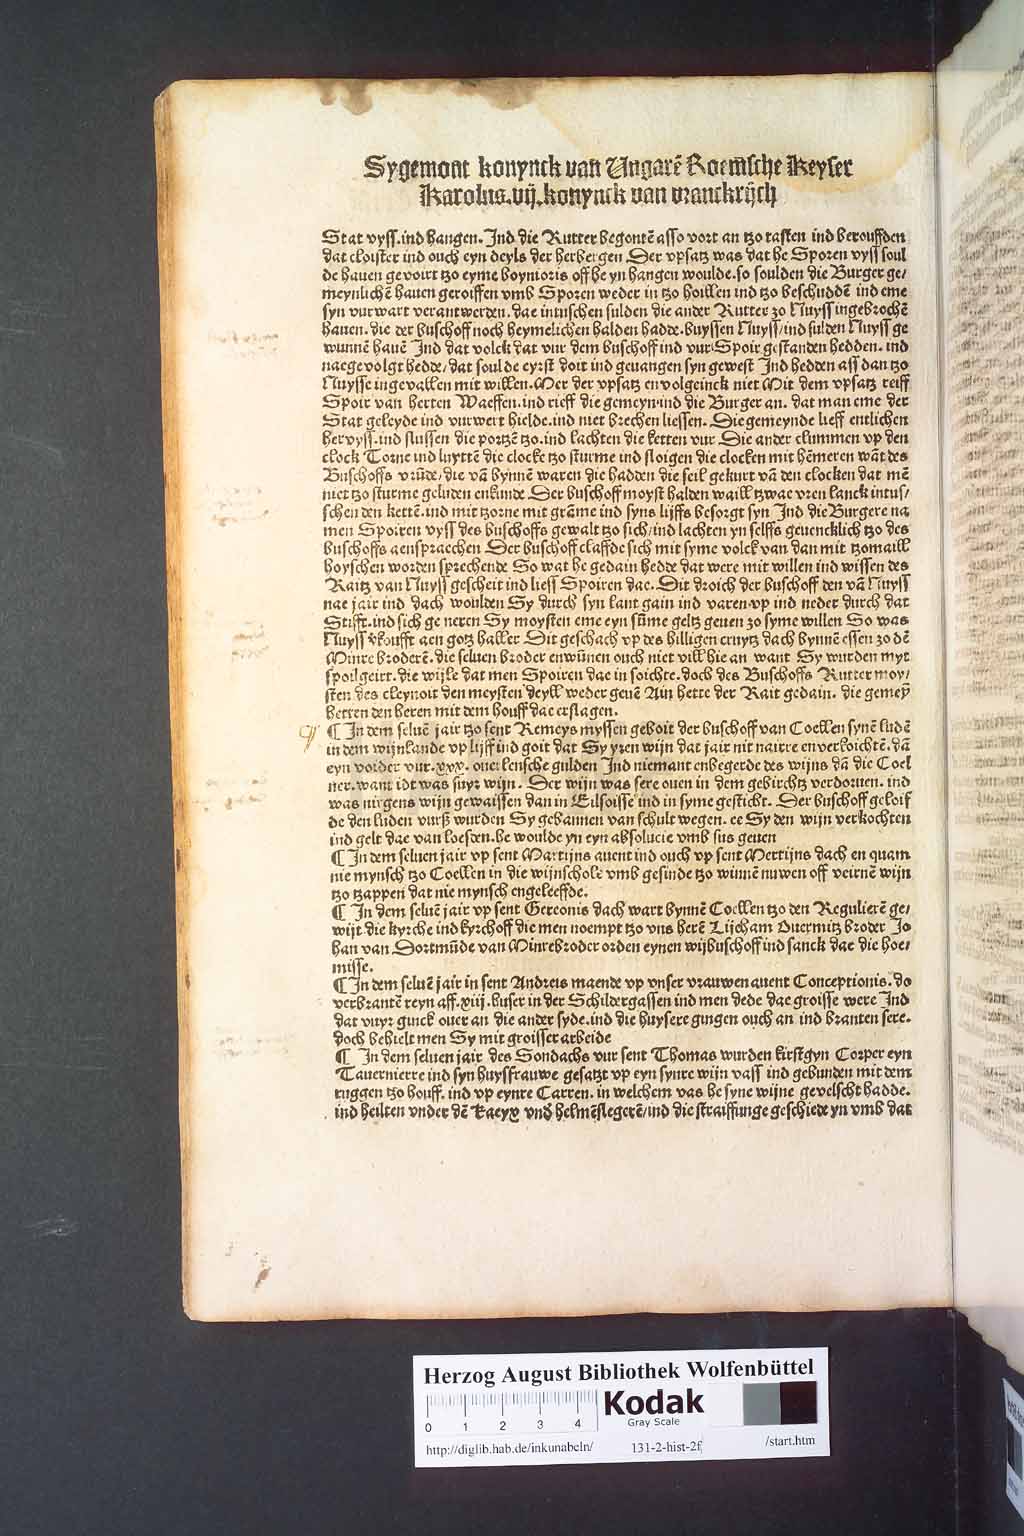 Sygemont konynck van Ungarē Roemsche Keyser
Karolus.vij.konynck van vranckrijch
Stat vyss.ind hangen. Ind die Rutter begontē asso vort an tzo tasten ind berouffden
dat cloister ind ouch eyn deyls der herbergen Der vpsatz was dat he Sporen vyss soul
de hauen gevoirt tzo eyme boynioris off he yn hangen woulde.so soulden die Burger ge/
meynlichē hauen geroiffen vmb Sporen weder in tzo hoillen ind tzo beschuddē ind eme
syn vurwart verantwerden. dae intuschen sulden die ander Rutter zo Nuyss ingebrochē
hauen. die der buschoff noch heymelichen halden hadde.buyssen Nuyss/ind sulden Nuyss ge
wunnē hauē Ind dat volck dat vur dem buschoff ind vur Spoir gestanden hedden. ind
naegevolgt hedde/dat soulde eyrst doit ind geuangen syn gewest Ind hedden ass dan tzo
Nuysse ingevallen mit willen.Mer der vpsatz en volgeinck niet Mit dem vpsatz reiff
Spoir van herten Waeffen.ind rieff die gemeyn ind die Burger an. dat man eme der
Stat geleyde ind vurwert hielde.ind niet brechen liessen. Die gemeynde lieff entlichen
her vyss.ind slussen die portzē tzo.ind lachten die ketten vur Die ander clummen vp den
clock Torne ind luyttē die clocke tzo sturme ind sloigen die clocken mit hēmeren wāt des
Buschoffs vrūde/die vā bynnē waren die hadden die seil gekurt vā den clocken dat mē
niet tzo sturme geluden enkunde Der buschoff moyst halden waill tzwae vren lanck intus/
schen den kettē.ind mit tzorne mit grāme ind syns lijffs besorgt syn Ind die Burgere na
men Spoiren vyss des buschoffs gewalt tzo sich/ind lachten yn selffs geuencklich tzo des
buschoffs aensprachen Der buschoff claffde sich mit syme volck van dan mit tzomaill
hoyschen worden sprechende So wat he gedain hedde dat were mit willen ind wissen des
Raitz van Nuyss gescheit ind liess Spoiren dae. Dit droich der buschoff den vā Nuyss
nae jair ind dach woulden Sy durch syn lant gain ind varen vp ind neder durch dat
Stifft.ind sich ge neren Sy moysten eme eyn sūme geltz geuen zo syme willen So was
Nuyss vkoufft aen gotz haller Dit geschach vp des hilligen cruytz dach bynnē essen zo dē
Minre broderē. die seluen broder enwūnen ouch niet vill hie an want Sy wurden myt
spoilgeirt.die wijle dat men Spoiren dae in soichte.doch des Buschoffs Rutter moy/
sten des cleynoit den meysten deyll weder geuē Ain hette der Rait gedain. die gemeȳ
hetten den heren mit dem houff dae erslagen.
¶ In dem seluē jair tzo sent Remeys myssen geboit der buschoff van Coellen synē ludē
in dem wijnlande vp lijff ind goit dat Sy yren wijn dat jair nit nairre en verkoichtē.dā
eyn vorder vur.xxx. ouerlensche gulden Ind niemant enbegerde des wijns dā die Coel
ner.want idt was suyr wijn. Der wijn was sere ouen in dem gebirchtz verdoruen. ind
was nirgens wijn gewaissen dan in Eilsoisse ind in syme gesticht. Der buschoff geloif
de den luden vurß wurden Sy gebannen van schult wegen. ee Sy den wijn verkochten
ind gelt dae van loesden.he woulde yn eyn absolucie vmb sus geuen
¶ In dem seluen jair vp sent Martijns auent ind ouch vp sent Mertijns dach en quam
nie mynsch tzo Coellen in die wijnschole vmb gesinde tzo winnē nuwen off veirnē wijn
tzo tzappen dat nie mynsch engeleeffde.
¶ In dem seluē jair vp sent Gereonis dach wart bynnē Coellen tzo den Regulierē ge/
wijt die kyrche ind kyrchoff die men noempt tzo vns herē Lijcham Ouermitz broder Jo
han van Dortmūde van Minrebroder orden eynen wijbuschoff ind sanck dae die hoe/
misse.
¶ In dem seluē jair in sent Andreis maende vp vnser vrauwen auent Conceptionis. do
verbrantē reyn aff.xiij.huser in der Schildergassen ind men dede dae groisse were Ind
dat vuyr ginck ouer an die ander syde.ind die huysere gingen ouch an ind branten sere.
doch behielt men Sy mit groisser arbeide
¶ In dem seluen jair des Sondachs vur sent Thomas wurden kirstgyn Corper eyn
Tauernierre ind syn huysfrauwe gesatzt vp eyn synre wijn vass ind gebunden mit dem
ruggen tzo houff. ind vp eynre Carren. in welchem vas he syne wijne gevelscht hadde.
ind heilten vnder dē kaeyx vnd helmēslegerē/ind die straiffunge geschiede yn vmb dat
Herzog August Bibliothek Wolfenbüttel
0 1 2 3 4
Kodak
Gray Scale
http://diglib.hab.de/inkunabeln/ 131-2-hist-2f /start.htm